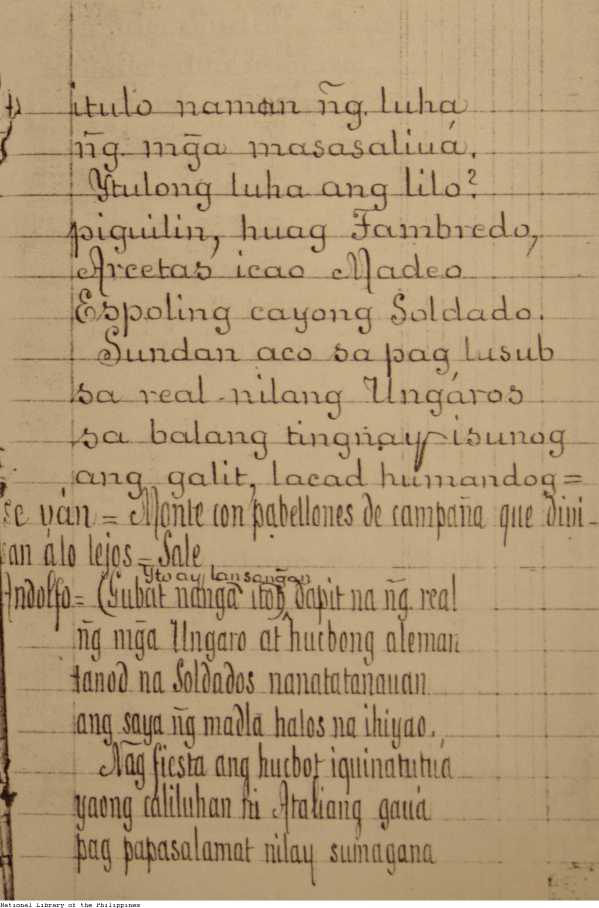 itulo naman ñg. luha
ñg. mg̃a masasaliuá.
Ytulong luha ang lilo?
piguilin, huag Fambredo,
Arcetas icao Madeo
Espoling cayong Soldado.
Sundan aco sa pag lusub
sa real nilang Ungáros
sa balang tingnay isunog
ang galit, lacad humandog=
se ván = Monte con pabellones de campaña que divi-
san álo lejos = Sale
Yto ay lansang̃an
Andolfo = (Gubat nang̃a itoh dapit na ñg. real
ñg mg̃a Ungaro at hucbong aleman
tanod na Soldados nanatatanauan
ang saya ñg madla halos na ihiyao.
Nag̃ fiesta ang hucbot iquinatutuá
yaong caliluhan ni Ataliang gauá
pag papasalamat nilay sumagana
National Library of the Philippines